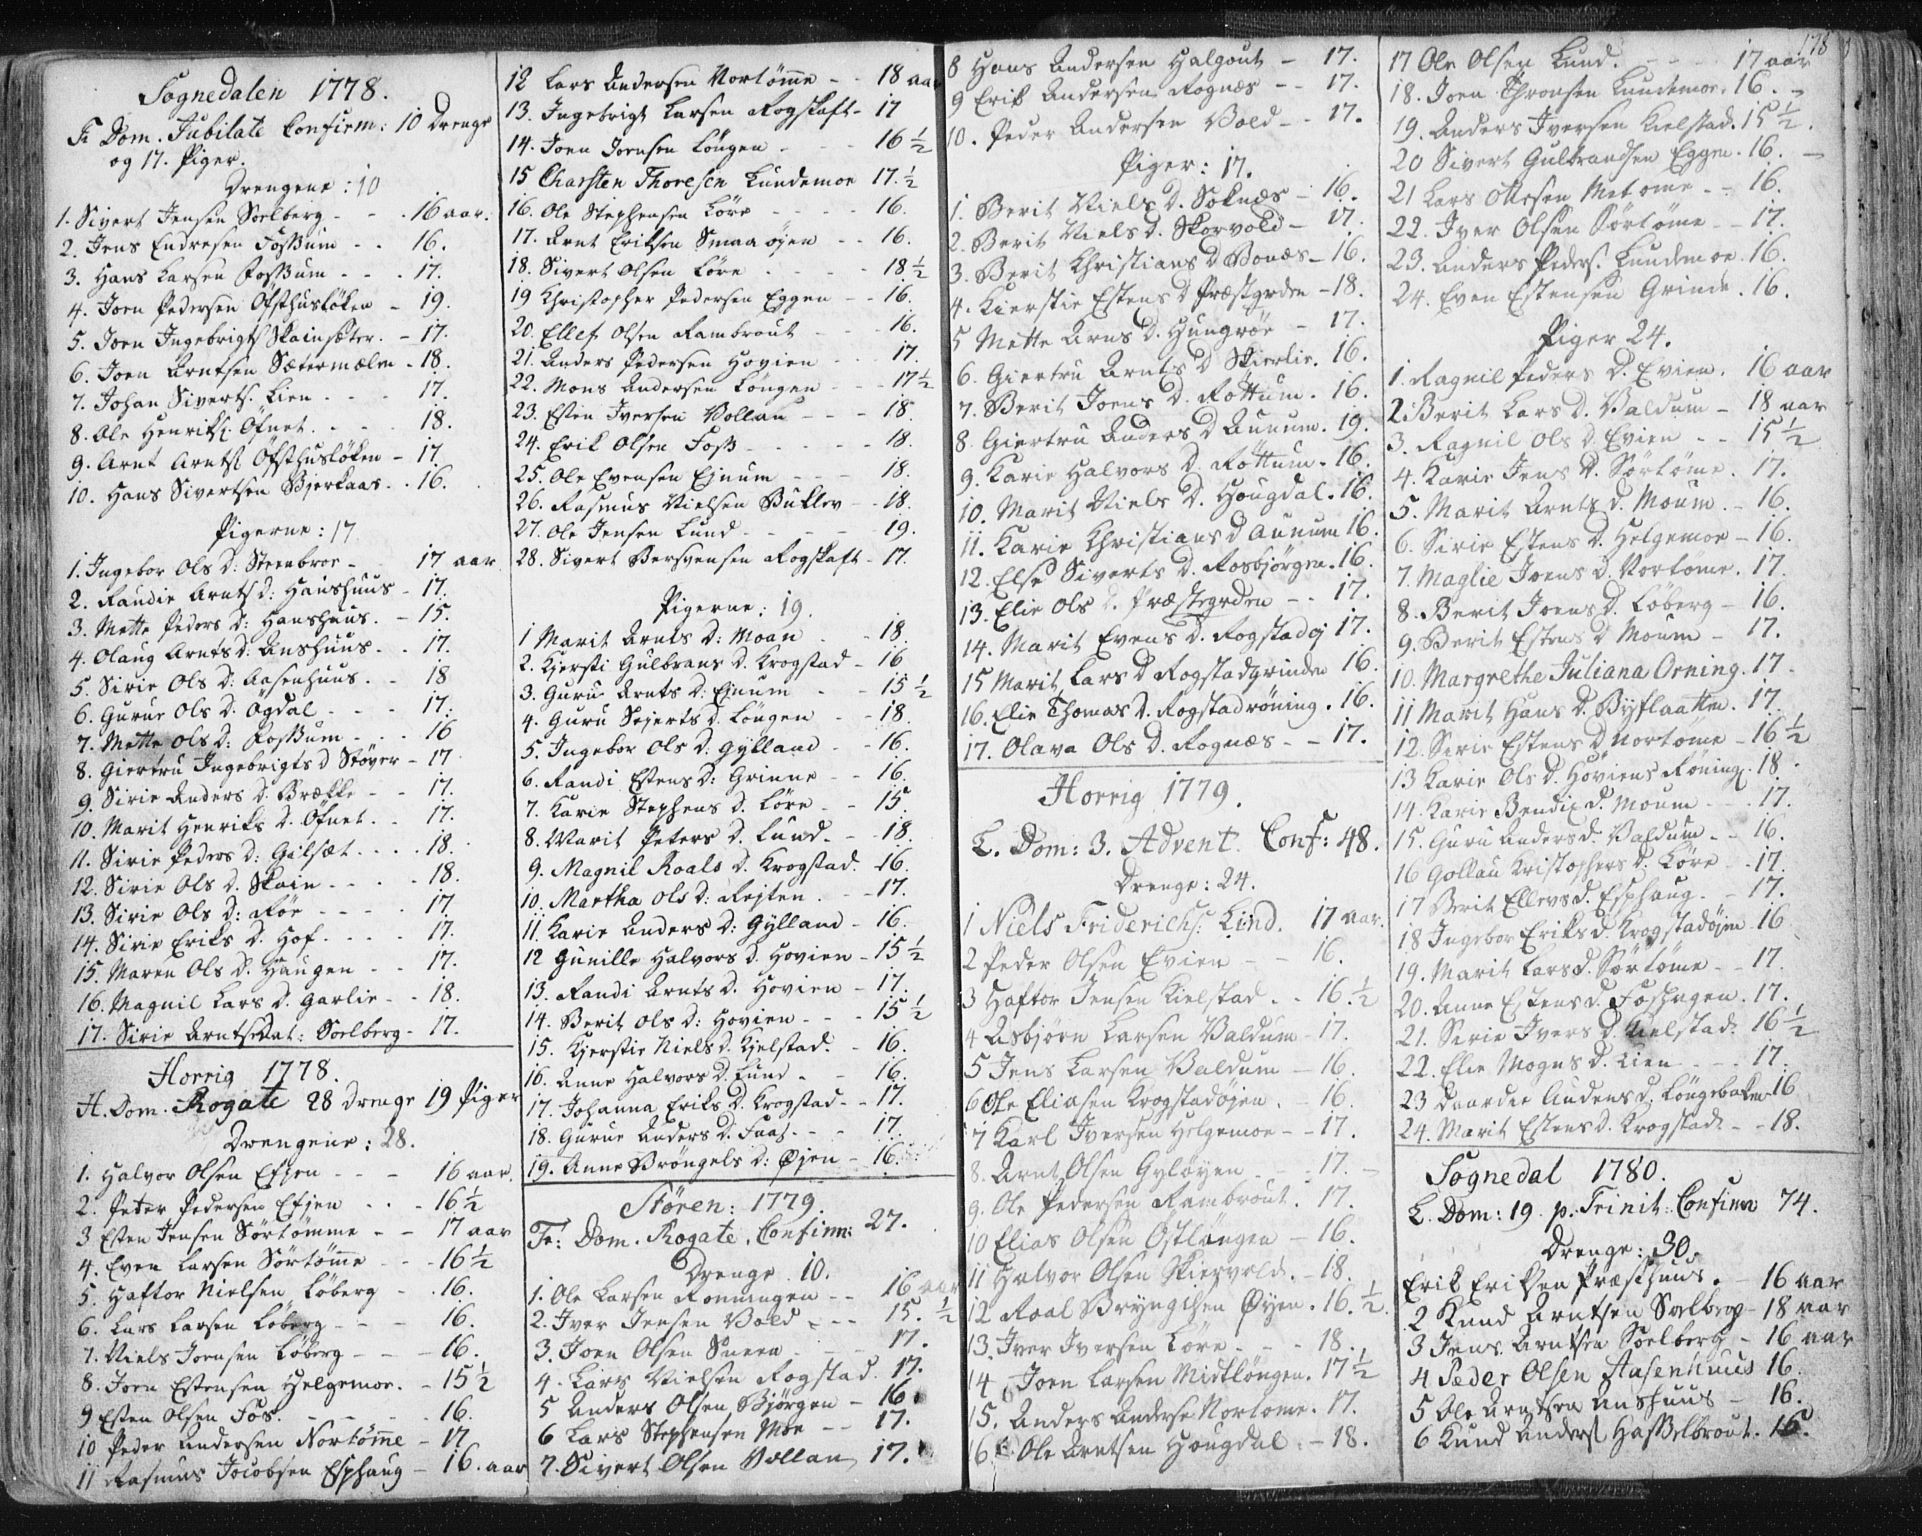 Sognedalen 1778.
Fr Dom. Jubilate Confirm: 10 Drenge
og 17. Piger.
Drengene: 10
1. Sivert Jensen Soelberg - - - 16 aar.
2. Jens Endresen Fossum - - 16.
3. Hans Larsen Fossum - - - 17.
4. Joen Pedersen Ofsthusløken - 19.
5. Joen Ingebrigts Skainsæter. - 17.
6. Joen Arntsen Sætermælen - 18.
7. Johan Siverts. Lien - - - 17.
8. Ole Henriks: Ofnet. - - - 18.
9. Arnt Arnts Ofsthusløken - 17
10. Hans Sivertsen Bjerkaas - - 16.
Pigerne: 17
1. Ingebor Ols d: Steenbroe - 17 aar
2. Randie Arnts d: Haushuus - 17.
3. Mette Peders d: Hanshuus. - 15.
4. Olaug Arnts d: Anshuus - - 17.
5. Sirie Ols d: Aasenhuus. - 18
6. Gurue Ols d: Øgdal - - - 17.
7. Mette Ols d: Fossum - - - 16
8. Giertru Ingebrigts d Støver - 17
9. Sirie Anders d. Brække - - 17.
10. Marit Henriks d. Ofnet. - - 17.
11. Sirie Peders d: Gilsæt - - - 18.
12. Sirie Ols d: Skain - - - - 18.
13. Sirie Ols d: Røe - - - - 17
14. Sirie Eriks d. Hof. - - - 17.
15. Maren Ols d. Haugen - - 17.
16. Magnil Lars d. Garlie - - 18.
17. Sirie Arntsdat: Soelberg - 17.
Horrig 1778.
H. Dom. Rogate 28 Drenge 19 Piger
Drengene: 28.
1. Halvor Olsen Efjen - - - 16 aar.
2. Peter Pedersen Efjen - - - 16 ½
3 Esten Jensen Sørtømme - - 17 aar
4. Even Larsen Sørtømme - - - 16 ½
5. Haftor Nielsen Løberg - - 16.
6. Lars Larsen Løberg - - - 16.
7. Niels Joensen Løberg - - - 16.
8. Joen Estensen Helgemoe. - 15 ½
9 Esten Olsen Fos. - - - - 16.
10 Peder Andersen Nortømme - 17
11 Rasmus Jocobsen Esphaug - 16. aar
12 Lars Andersen Nortømme - - 18 aar
13. Ingebrigt Larsen Rogstaft - 17
14. Joen Joensen Løngen - - - 16 ½
15 Charsten Thoresen Lundemoe 17. ½
16. Ole Stephensen Løre - - - 16.
17. Arnt Eriksen Smaaøyen - - 16.
18. Sivert Olsen Løre - - - 18 ½
19 Christopher Pedersen Eggen - - 16.
20. Ellef Olsen Rambrout - - - 16.
21. Anders Pedersen Hovien - - 17.
22. Mons Andersen Løngen - - - 17 ½
23. Esten Iversen Vollan - - - 18.
24. Erik Olsen Foss - - - - - 18.
25. Ole Evensen Ejnum - - - 18.
26. Rasmus Nielsen Buklev - - 18.
27. Ole Jensen Lund - - - - - 19.
28. Sivert Bersvensen Rogstaft - 17.
Pigerne: 19.
1 Marit Arnts d: Moan - - 18.
2. Kjersti Gulbrans d. Krogstad - 16
3. Guru Arnts d: Ejnum - - - 15 ½
4. Guru Sejerts d. Løngen - - 18.
5. Ingebor Ols d: Gylland - - 16.
6. Randi Estens d: Grinne - - 16.
7. Karie Stephens d. Løre - - 15.
8. Marit Peters d. Lund. - - 18.
9. Magnil Roals d. Krogstad. - 16.
10. Martha Ols d: Rejten. - - 17.
11. Karie Anders d: Gylland - 16.
12 Gunille Halvors d. Hovien - 15 ½
13. Randi Arnts d. Hovien - 17.
14. Berit Ols d: Hovien - - - 15 ½
15. Kjerstie Niels d. Kjelstad. - 16.
16. Anne Halvors d. Lund - - 16.
17. Johanna Eriks d. Krogstad - - 17.
18. Gurue Anders d. Foss. - - 17.
19. Anne Brøngels d: Øjen - 16.
Støren: 1779.
Fr: Dom. Rogate. Confirm: 27.
Drenge 10.
1. Ole Larsen Rønningen - - 16 aar
2. Iver Jensen Vold - - - 15. ½
3. Joen Olsen Sneen - - - 17.
4. Lars Nielsen Rogstad. 17.
5 Anders Olsen Bjørgen - 16.
6 Lars Stephensen Moe - - 17.
7. Sivert Olsen Vollan 17.
8 Hans Andersen Halgout - 17.
9 Erik Andersen Rognæs - - 17.
10. Peder Andersen Vold - - 17.
Piger: 17.
1. Berit Niels d. Soknæs - 16.
2. Berit Niels d. Skorvold - 17.
3. Berit Christians d Bonæs - 16.
4. Kierstie Estens d Præstgrden - 18.
5 Mette Arns d. Hungrøe - 17.
6. Giertru Arnts d Skierlie. 16.
7. Berit Joens d. Røttum. 16.
8. Giertru Anders d Aunum. 19.
9. Karie Halvors d. Røttum. 16.
10. Marit Niels d. Hougdal. 16.
11. Karie Christians d Aunum 16.
12. Else Siverts d. Rosbjørgen. 16.
13. Elie Ols d. Præstegrden - - 17.
14. Marit Evens d. Rogstadøj 17.
15 Marit Lars d Rogstadgrinden 16.
16. Elie Thomas d. Rogstadrøning. 16.
17. Olava Ols d. Rognæs - - 17.
Horrig 1779.
L. Dom: 3. Advent. Conf: 48.
Drenge: 24.
1 Niels Friderichs: Lind. 17 aar.
2 Peder Olsen Evien - - 16.
3 Haftor Jensen Kielstad. - - 16. ½
4 Asbjørn Larsen Valdum - 17.
5 Jens Larsen Valdum - 16.
6 Ole Eliasen Krogstadøjen. - 16.
7 Karl Iversen Helgemoe - - 17.
8. Arnt Olsen Gyløyen - - 17. -
9. Ole Pedersen Rambrout. 17.
10 Elias Olsen Ostløngen - 16.
11 Halvor Olsen Skiervold. - 18.
12 Roal Bryngelsen Øyen. 16. ½.
13. Iver Iversen Løre - - - 18.
14 Joen Larsen Midtløngen. 17 ½
15. Anders Anderse Nortome. 17.
16. Ole Arntsen Hougdal - - 18.
178
17 Ole Olsen Lund. - - - 17 aar
18. Joen Thronsen Lundemoe. 16. -
19. Anders Iversen Kielstad. 15 ½.
20 Sivert Gulbrandsen Eggen. 16. -
21 Lars Ottesen Metome - - 16.
22. Iver Olsen Sørtøme - - 17.
23. Anders Peders. Lundemoe. 16.
24. Even Estensen Grinde. 16.
Piger 24.
1. Ragnil Peders d. Evien. 16 aar
2 Berit Lars d. Valdum - 18 aar
3. Ragnil Ols d. Evien - - 15 ½
4. Karie Jens d. Sørtøme. 17.
5. Marit Arnts d. Moum. - 16.
6. Sirie Estens d. Helgemoe - 16.
7. Maglie Joens d. Nortøme. 17.
8. Berit Joens d. Løberg - 16.
9. Berit Estens d Moum - 17.
10. Margrethe Juliana Orning. 17 -
11 Marit Hans d. Byflaatten. 17.
12. Sirie Estens d Nortøme - 16 ½
13 Karie Ols d. Høviens Røning. 18.
14. Karie Bendix d. Moum - - 17.
15. Guru Anders d. Valdum - - 16.
16 Gollau Kristophers d. Løre - - 17.
17 Berit Ellevs d. Esphaug. - 17.
18 Ingebor Eriks d. Krogstadøjen 16
19. Marit Lars d. Sørtøme - - 17.
20. Anne Estens d. Foshagen. 17.
21. Serie Ivers d. Kielstad. 16 ½
22. Elie Mogns d. Lien - - - 17.
23 Daardie Audens d. Løngebaken 16
24. Marit Estens d. Krogstad - - 18.
Sognedal 1780.
L. Dom: 19. p. Trinit: Confirm 74.
Drenge: 30.
Erik Eriksen Præsthuus. - 16 aar
2 Knud Arntsen Soelberg - 18 aar
3 Jens Arntsen Soelberg - 16 aar
4 Peder Olsen Aasenhuus 16.
5 Ole Arntsen Anshuus - 16.
6 Knud Anders Hasselbrout. 16.